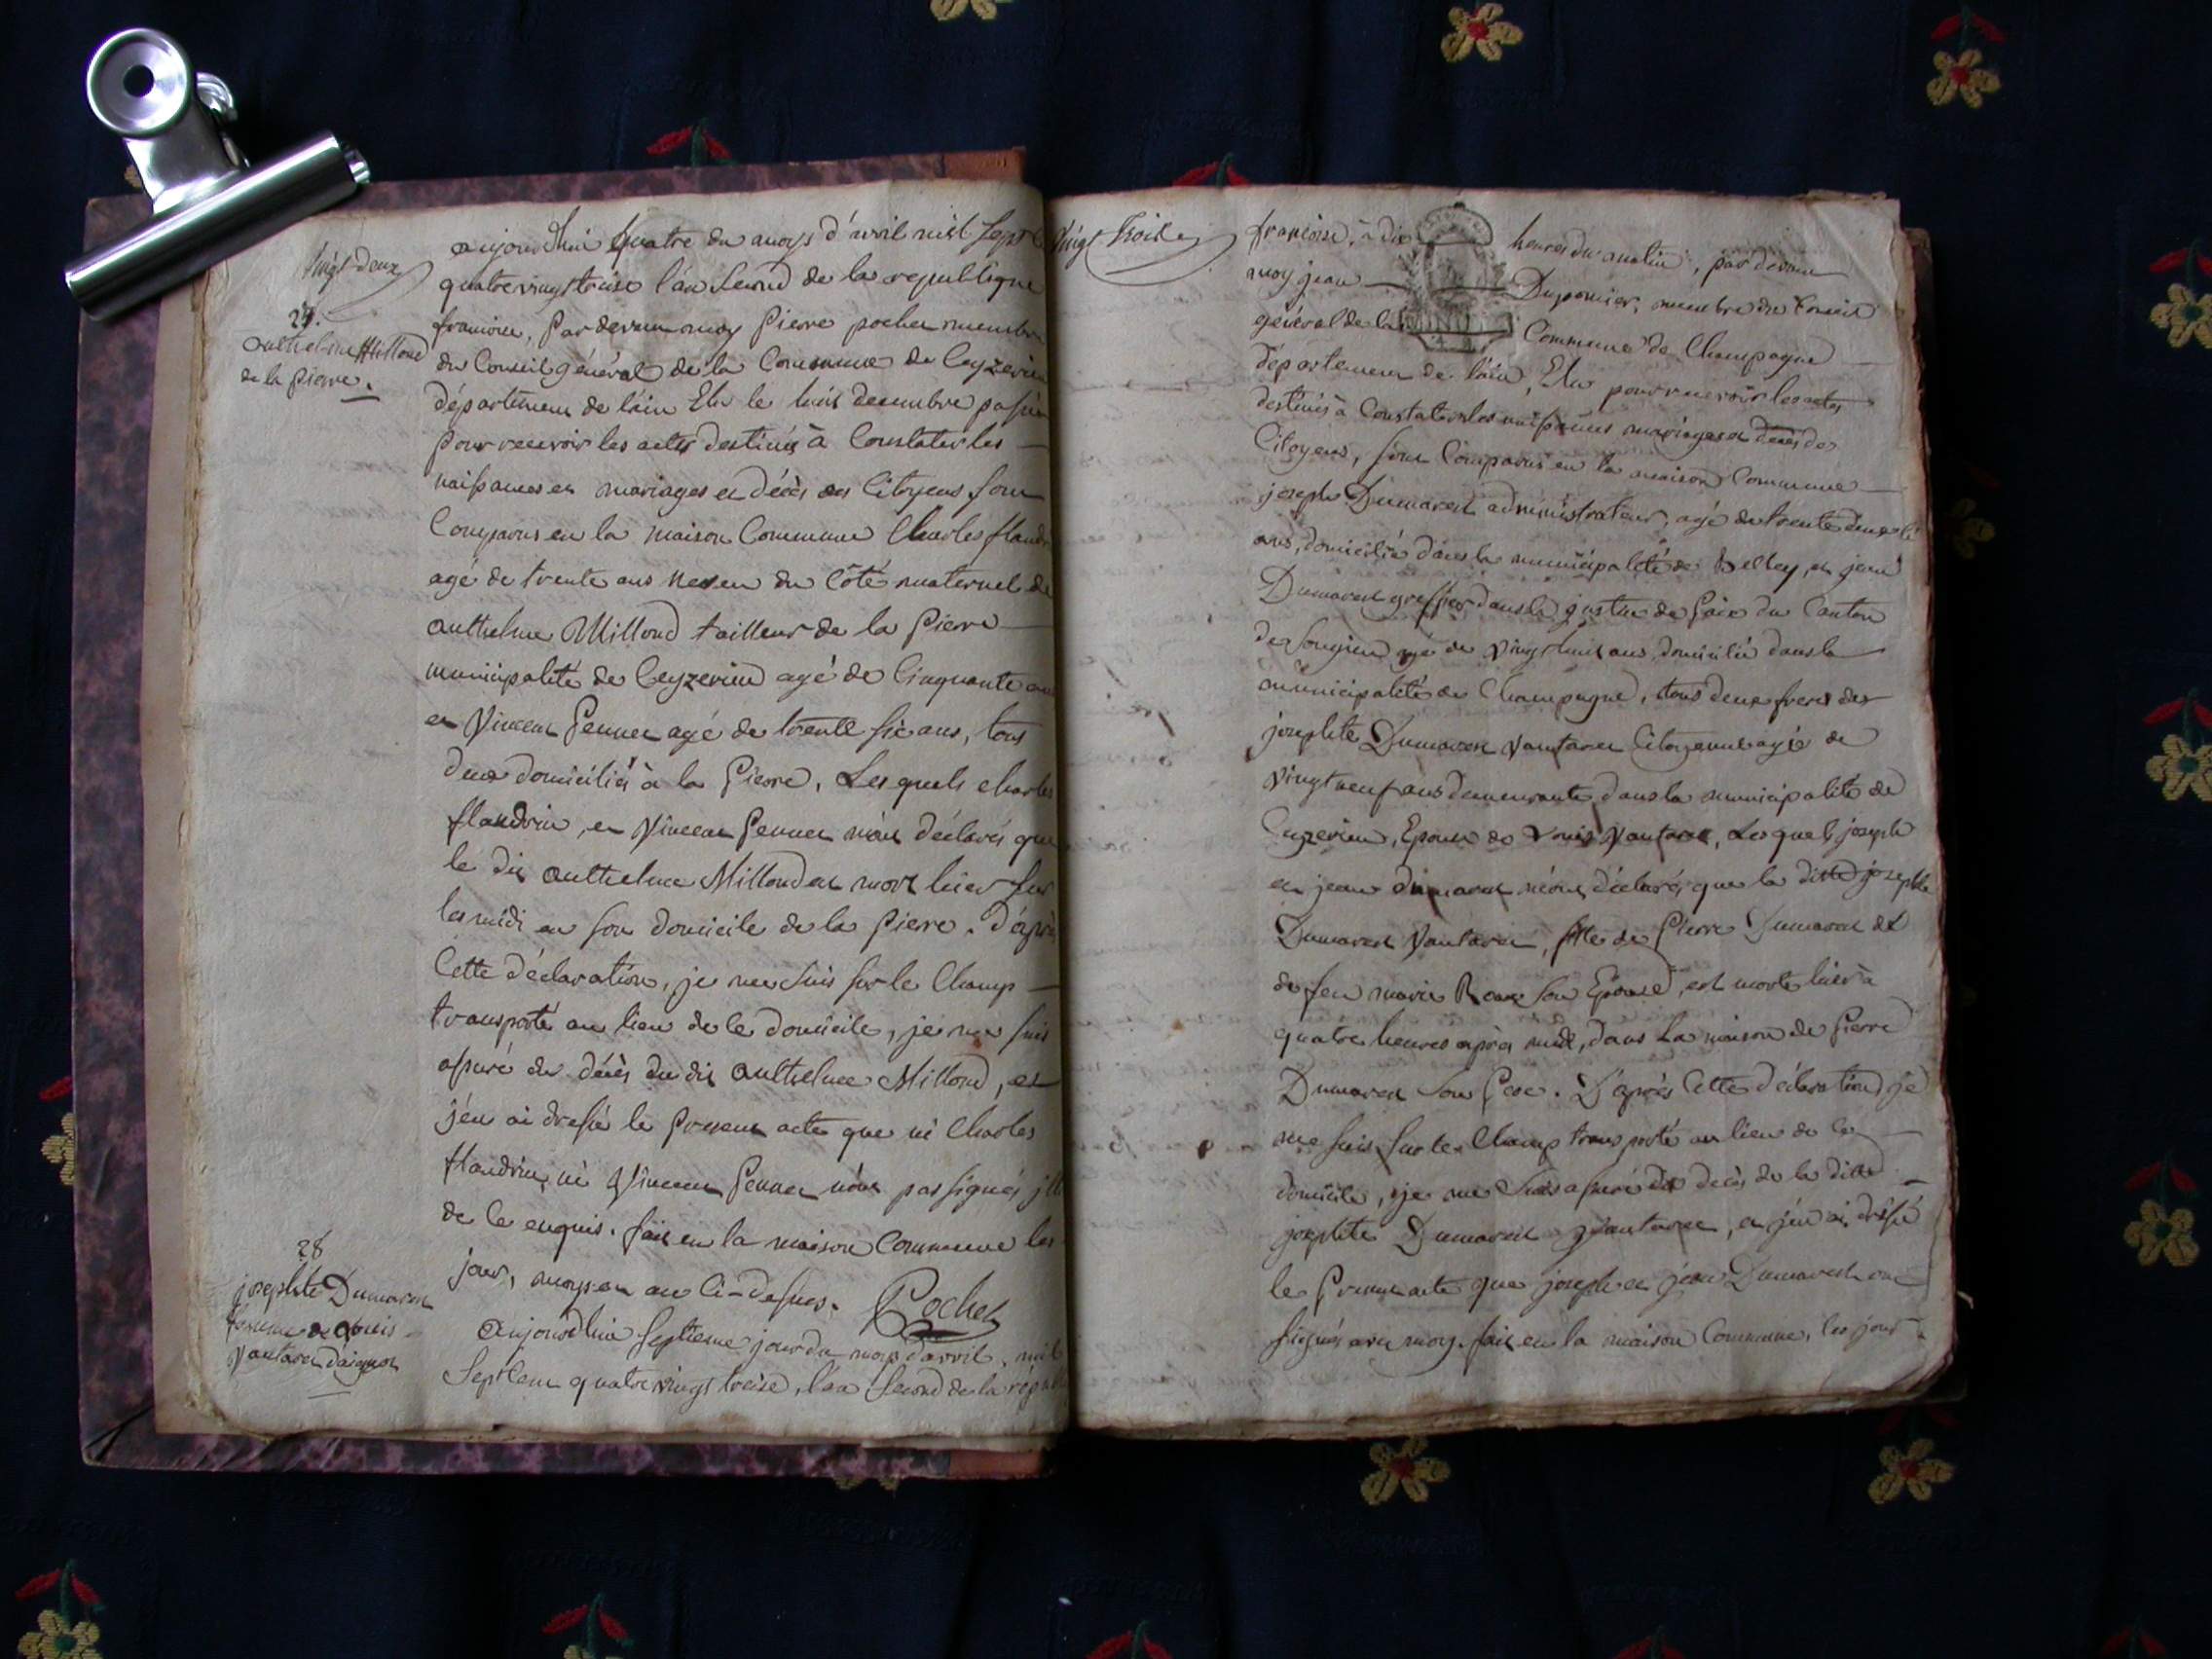 vingt-deux
27.
anthelme Millond
de la pierre.
aujourdhui quatre du moys d'avril mil sept
quatrevingt treise l'an second de la republique
francoise, par devan moy pierre pochet membre
du Conseil général de la Commune de Ceyzerieu
département de l'ain Elu le huit decembre passé
pour recevoir les actes destinés à Constater les
naissances et mariages et décès des Citoyens sont
Comparus en la maison Commune Charles flandrin
agé de trente ans neveu du Côté maternel de
anthelme Millond tailleur de la pierre
municipalité de Ceyzerieu agé de Cinquante ans
et Vincent agé de trente six ans, tous
deux domiciliés à la pierre, Les quels charles
flandrin, et Vincent m'ont déclarés que
le dit anthelme Millond est mort hier sur
les midi en son domicile de la pierre. D'après
Cette déclaration, je me suis sur le Champ
transporté au lieu de ce domicile, je me suis
assuré du décès du dit anthelme Millond, et
j'en ai dressé le present acte que ni Charles
flandrin, ni Vincent n'ont pas signés
de ce enquis. fait en la maison Commune les
jour, moys et an Ci-dessus. Pochet
28
josephte Dumarest
femme de Louis
Vantaret d'aignoz
Aujourdhui septieme jour du moys d'avril, mil
Sept cent quatrevingt treise, l'an second de la répub
vingt trois
francoise, à dix heures du matin, par devan
moy jean Dupormier, membre du Conseil
général de la Commune de Champagne
département de l'ain, Elu pour recevoir les actes
destinés à Constater les naissances mariages et décès des
Citoyens, sont Comparus en la maison Commune
joseph Dumarest administrateur, agé de trente
ans, domicilié dans la municipalité de Belley, et jean
Dumarest greffier dans la justice de paix du Canton
de Songieu agé de vingt huit ans, domicilié dans la
municipalité de Champagne, tous deux freres de
josephte Dumarest Vantaret Citoyenne agée de
vingt neuf ans demeurante dans la municipalité de
Ceyzerieu, Epouse de Louis Vantaret, Les quels joseph
et jean dumarest m'ont déclarés que la ditte josephte
Dumarest Vantaret, fille de Pierre Dumarest et
de feu marie Roux son Epouse, est morte hier à
quatre heures après midi, dans la maison de Pierre
Dumarest son Pere. D'après Cette déclaration, je
me suis sur le Champ transporté au lieu de Ce
domicile, je me suis assuré du decès de la ditte
josephte Dumarest Vantaret, et j'en ai dréssé
le present acte que joseph et jean Dumarest ont
signés avec moy. fait en la maison Commune, les jour